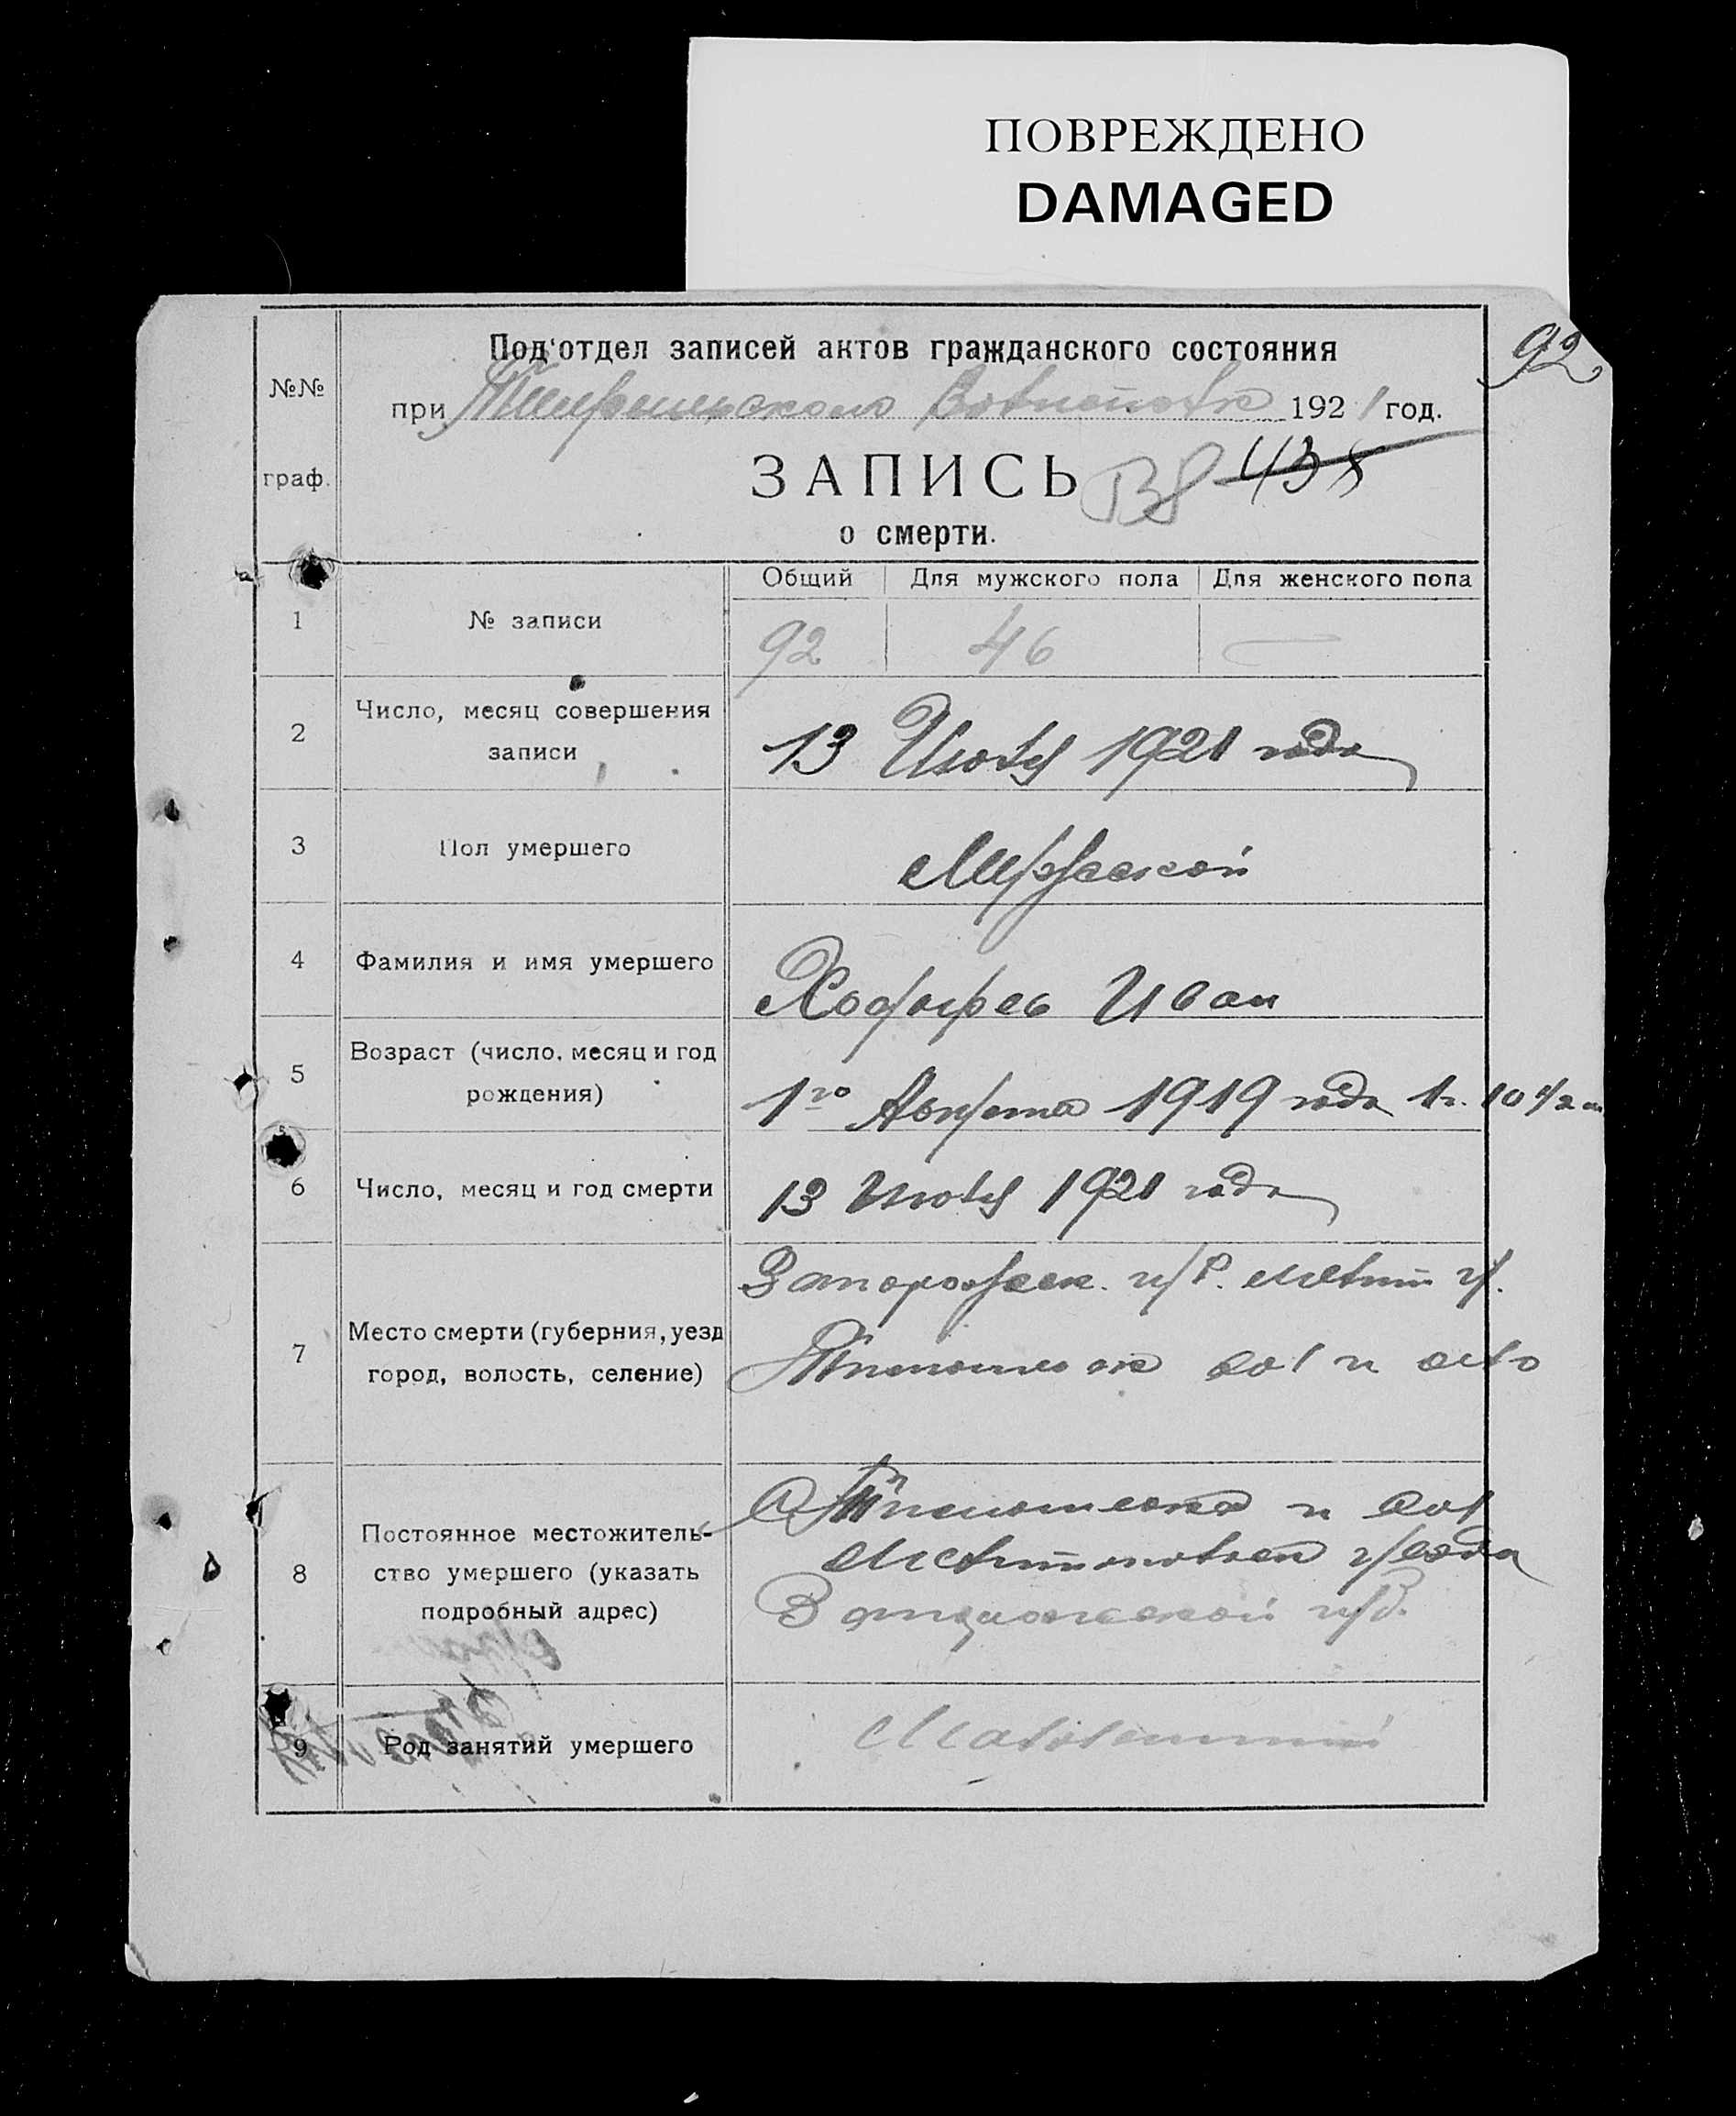 ПОВРЕЖДЕНО
DAMAGED
92
Под'отдел записей актов гражданского состояния
№№ граф.
при 1921 год.
ЗАПИСЬ
о смерти.
Общий Для мужского пола Для женского пола
1 № записи 92 46 —
2 Число, месяц совершения
записи
13 Июля 1921 года
3 Пол умершего Мужской
4 Фамилия и имя умершего Иван
5 Возраст (число, месяц и год
рождения)
1го Августа 1919 года 1 г. 10 1/2 м
6 Число, месяц и год смерти 13 Июля 1921 года
7 Место смерти (губерния, уезд
город, волость, селение)
Запорожск. губ. Мелит у.
вол и село
8 Постоянное местожитель-
ство умершего (указать
подробный адрес)
и вол
Мелитопольск уезда
Запорожской губ.
9 Род занятий умершего Малолетний